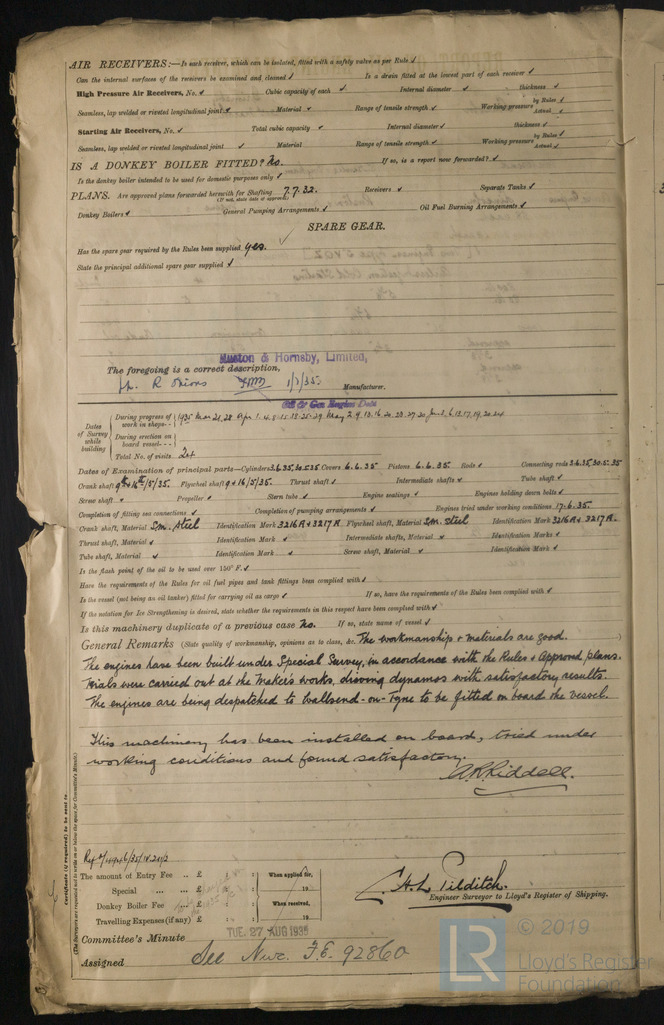 AIR RECEIVERS:—Is each receiver, which can be isolated, fitted with a safety valve as per Rule ✓
Can the internal surfaces of the receivers be examined and cleaned ✓ Is a drain fitted at the lowest part of each receiver ✓
High Pressure Air Receivers, No. ✓ Cubic capacity of each ✓ Internal diameter ✓ thickness ✓
Seamless, lap welded or riveted longitudinal joint ✓ Material ✓ Range of tensile strength ✓ Working pressure by Rules ✓ Actual ✓
Starting Air Receivers, No. ✓ Total cubic capacity ✓ Internal diameter ✓ thickness ✓
Seamless, lap welded or riveted longitudinal joint ✓ Material ✓ Range of tensile strength ✓ Working pressure by Rules ✓ Actual ✓
IS A DONKEY BOILER FITTED? No. If so, is a report now forwarded? ✓
Is the donkey boiler intended to be used for domestic purposes only ✓
PLANS. Are approved plans forwarded herewith for Shafting 7.7.32. Receivers ✓ Separate Tanks ✓
(If not, state date of approval)
Donkey Boilers ✓ General Pumping Arrangements ✓ Oil Fuel Burning Arrangements ✓
SPARE GEAR.
Has the spare gear required by the Rules been supplied yes. ✓
State the principal additional spare gear supplied ✓
Ruston & Hornsby, Limited,
The foregoing is a correct description,
1/7/35 Manufacturer.
Oil & Gas Engine Dept
Dates of Survey while building
During progress of work in shops - - 1935 Mar 21, 28 Apr 1. 4. 8. 15. 18. 25. 29 May 2. 9. 13. 16 20. 23. 27. 30 June 6. 13. 17. 19. 20. 24
During erection on board vessel - - -
Total No. of visits 24
Dates of Examination of principal parts—Cylinders 3.6.35, 30.5.35 Covers 6.6.35 Pistons 6.6.35 Rods ✓ Connecting rods 3.6.35, 30.5.35
Crank shaft 9th & 16th/5/35. Flywheel shaft 9 & 16/5/35. Thrust shaft ✓ Intermediate shafts ✓ Tube shaft ✓
Screw shaft ✓ Propeller ✓ Stern tube ✓ Engine seatings ✓ Engines holding down bolts ✓
Completion of fitting sea connections ✓ Completion of pumping arrangements ✓ Engines tried under working conditions 17.6.35.
Crank shaft, Material Sm. Steel Identification Mark 3216A & 3217A. Flywheel shaft, Material Sm. Steel Identification Mark 3216A & 3217A.
Thrust shaft, Material ✓ Identification Mark ✓ Intermediate shafts, Material ✓ Identification Marks ✓
Tube shaft, Material ✓ Identification Mark ✓ Screw shaft, Material ✓ Identification Mark ✓
Is the flash point of the oil to be used over 150° F. ✓
Have the requirements of the Rules for oil fuel pipes and tank fittings been complied with ✓
Is the vessel (not being an oil tanker) fitted for carrying oil as cargo ✓ If so, have the requirements of the Rules been complied with ✓
If the notation for Ice Strengthening is desired, state whether the requirements in this respect have been complied with ✓
Is this machinery duplicate of a previous case No. If so, state name of vessel ✓
General Remarks (State quality of workmanship, opinions as to class, &c. The workmanship & materials are good.
The engines have been built under Special Survey, in accordance with the Rules & Approved plans.
Trials were carried out at the Maker's works, driving dynamos with satisfactory results.
The engines are being despatched to Wallsend-on-Tyne to be fitted on board the vessel.
This machinery has been installed on board, tried under
working conditions and found satisfactory.
A.R. Riddell.
Certificate (if required) to be sent to
(The Surveyors are requested not to write on or below the space for Committee's Minute.)
The amount of Entry Fee .. £ : : When applied for,
Special ... £ : : 19
Donkey Boiler Fee ... £ : : When received,
Travelling Expenses (if any) £ : : 19
H. L. Pilditch.
Engineer Surveyor to Lloyd's Register of Shipping.
Committee's Minute TUE. 27 AUG 1935
Assigned See Nwc. F.E. 92860
© 2019
LR
Lloyd's Register
Foundation